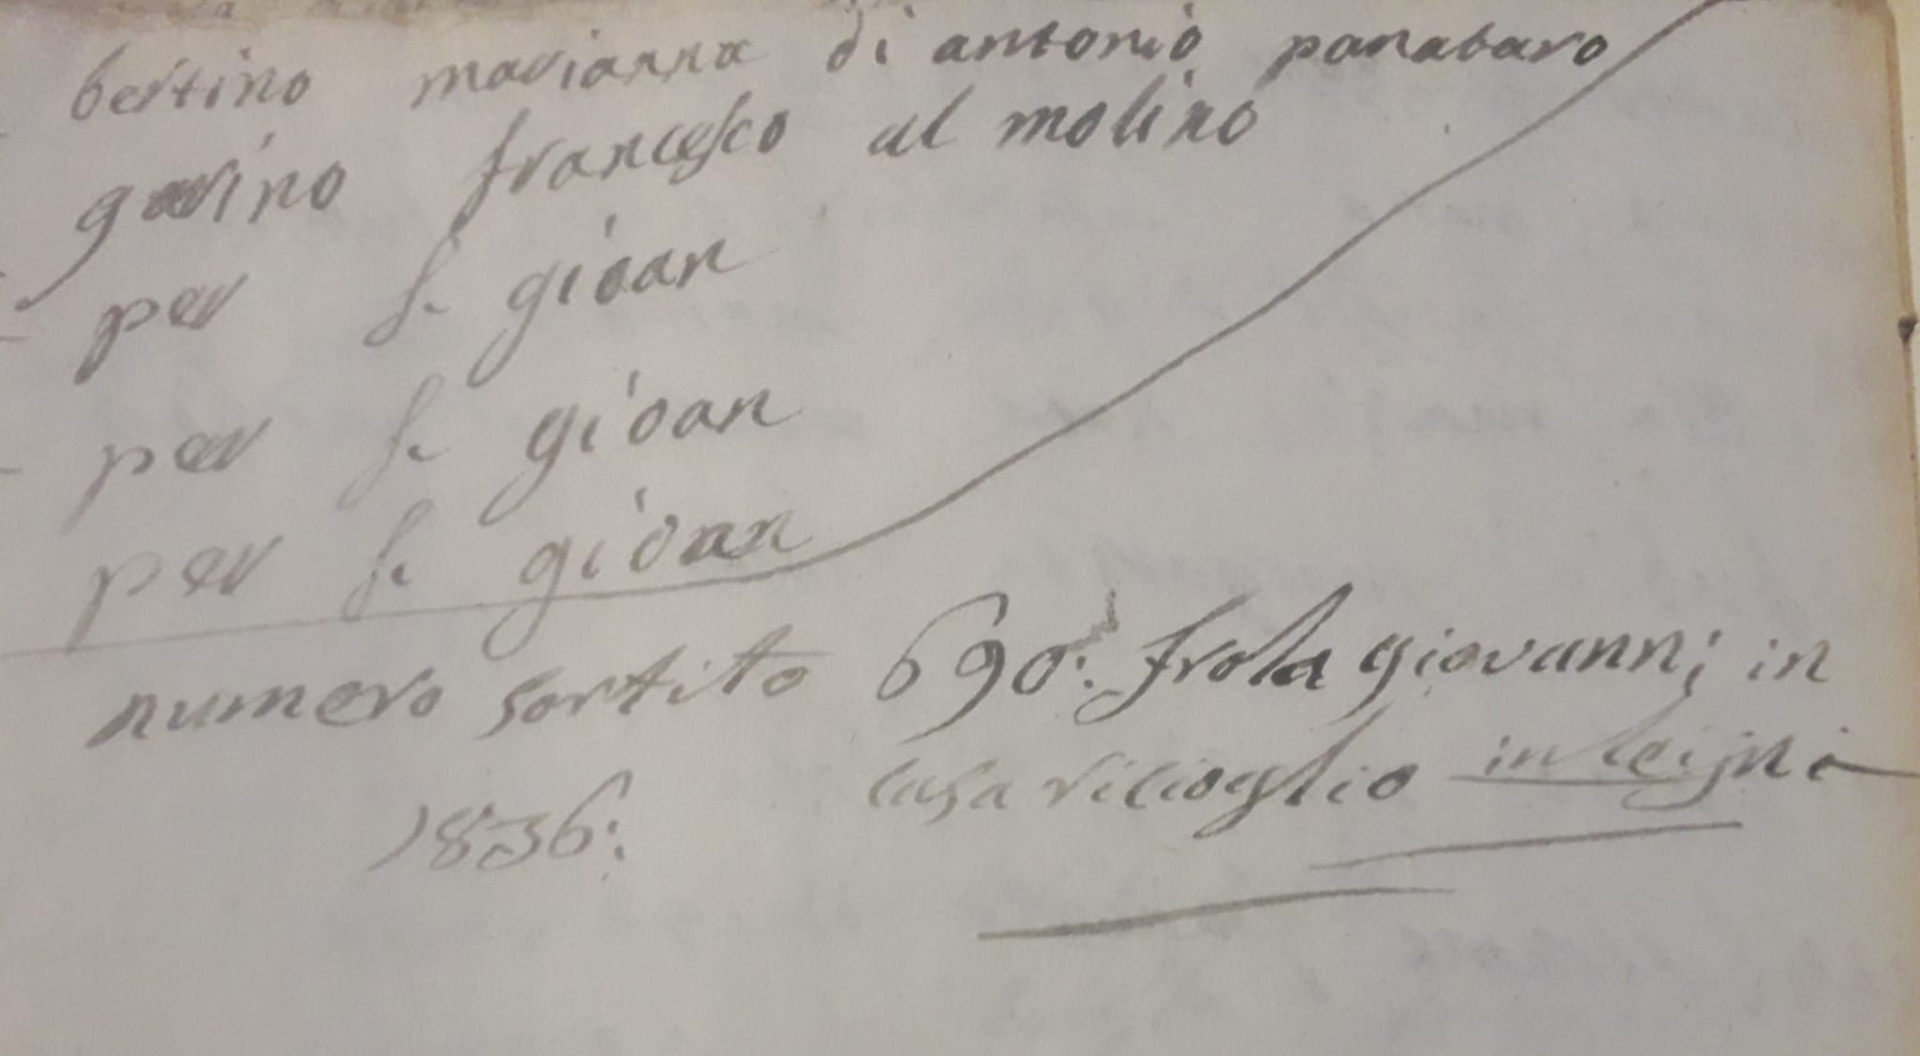 bertino marianna di antonio panataro
gavino francesco al molino
per S. gioan
per S. gioan
per S. gioan
numero sortito 690: frola giovanni in
1836: casa vicioglio in leijni